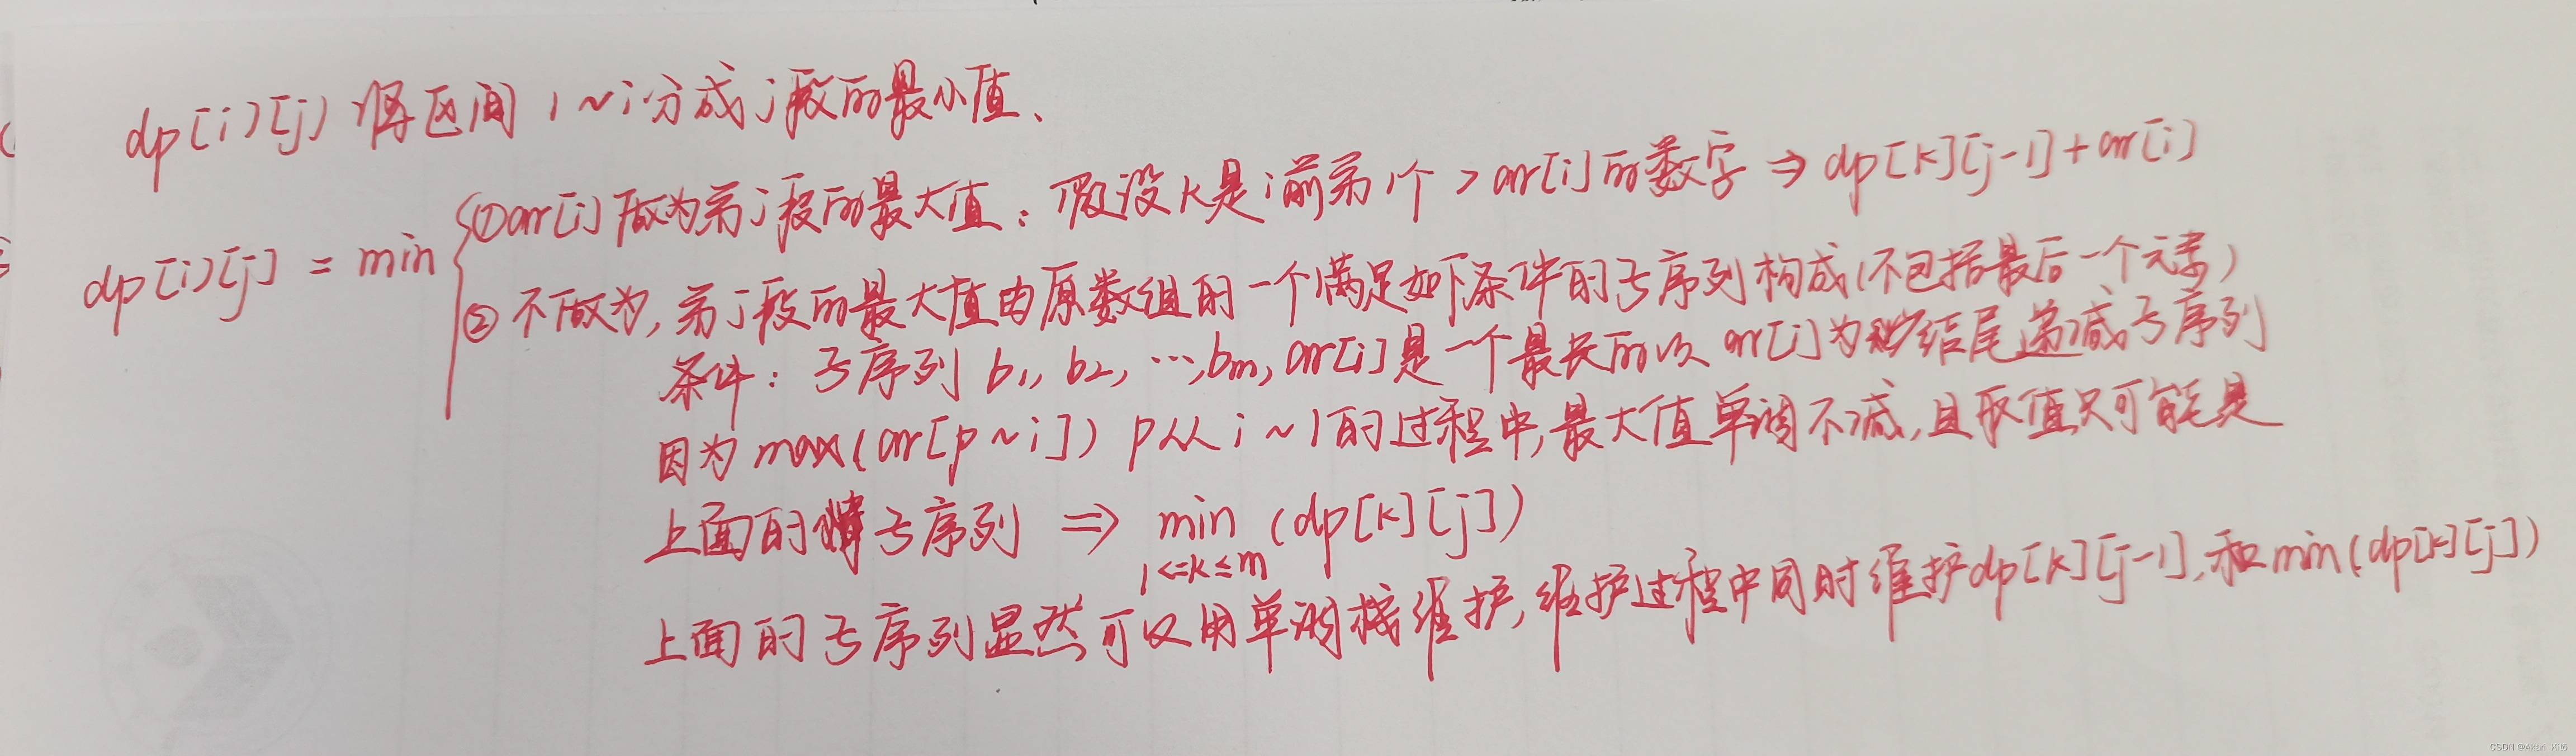 dp[i][j] 将区间 1~i 分成 j 段的最小值、
① arr[i] 做为第 j 段的最大值：假设 k 是 i 前第 1 个 > arr[i] 的数字 ⇒ dp[k][j-1]+arr[i]
dp[i][j] = min
② 不做为, 第 j 段的最大值由原数组的一个满足如下条件的子序列构成(不包括最后一个元素)
条件：子序列 b₁, b₂, …, bm, arr[i] 是一个最长的以 arr[i] 为结尾递减子序列
因为 max(arr[p~i]) p从 i~1 的过程中,最大值单调不减,且取值只可能是
上面的子序列 ⇒ min (dp[k][j])
1<=k≤m
上面的子序列显然可以用单调栈维护, 维护过程中同时维护 dp[k][j-1], 和 min(dp[k][j])
CSDN @Akari_Kitō